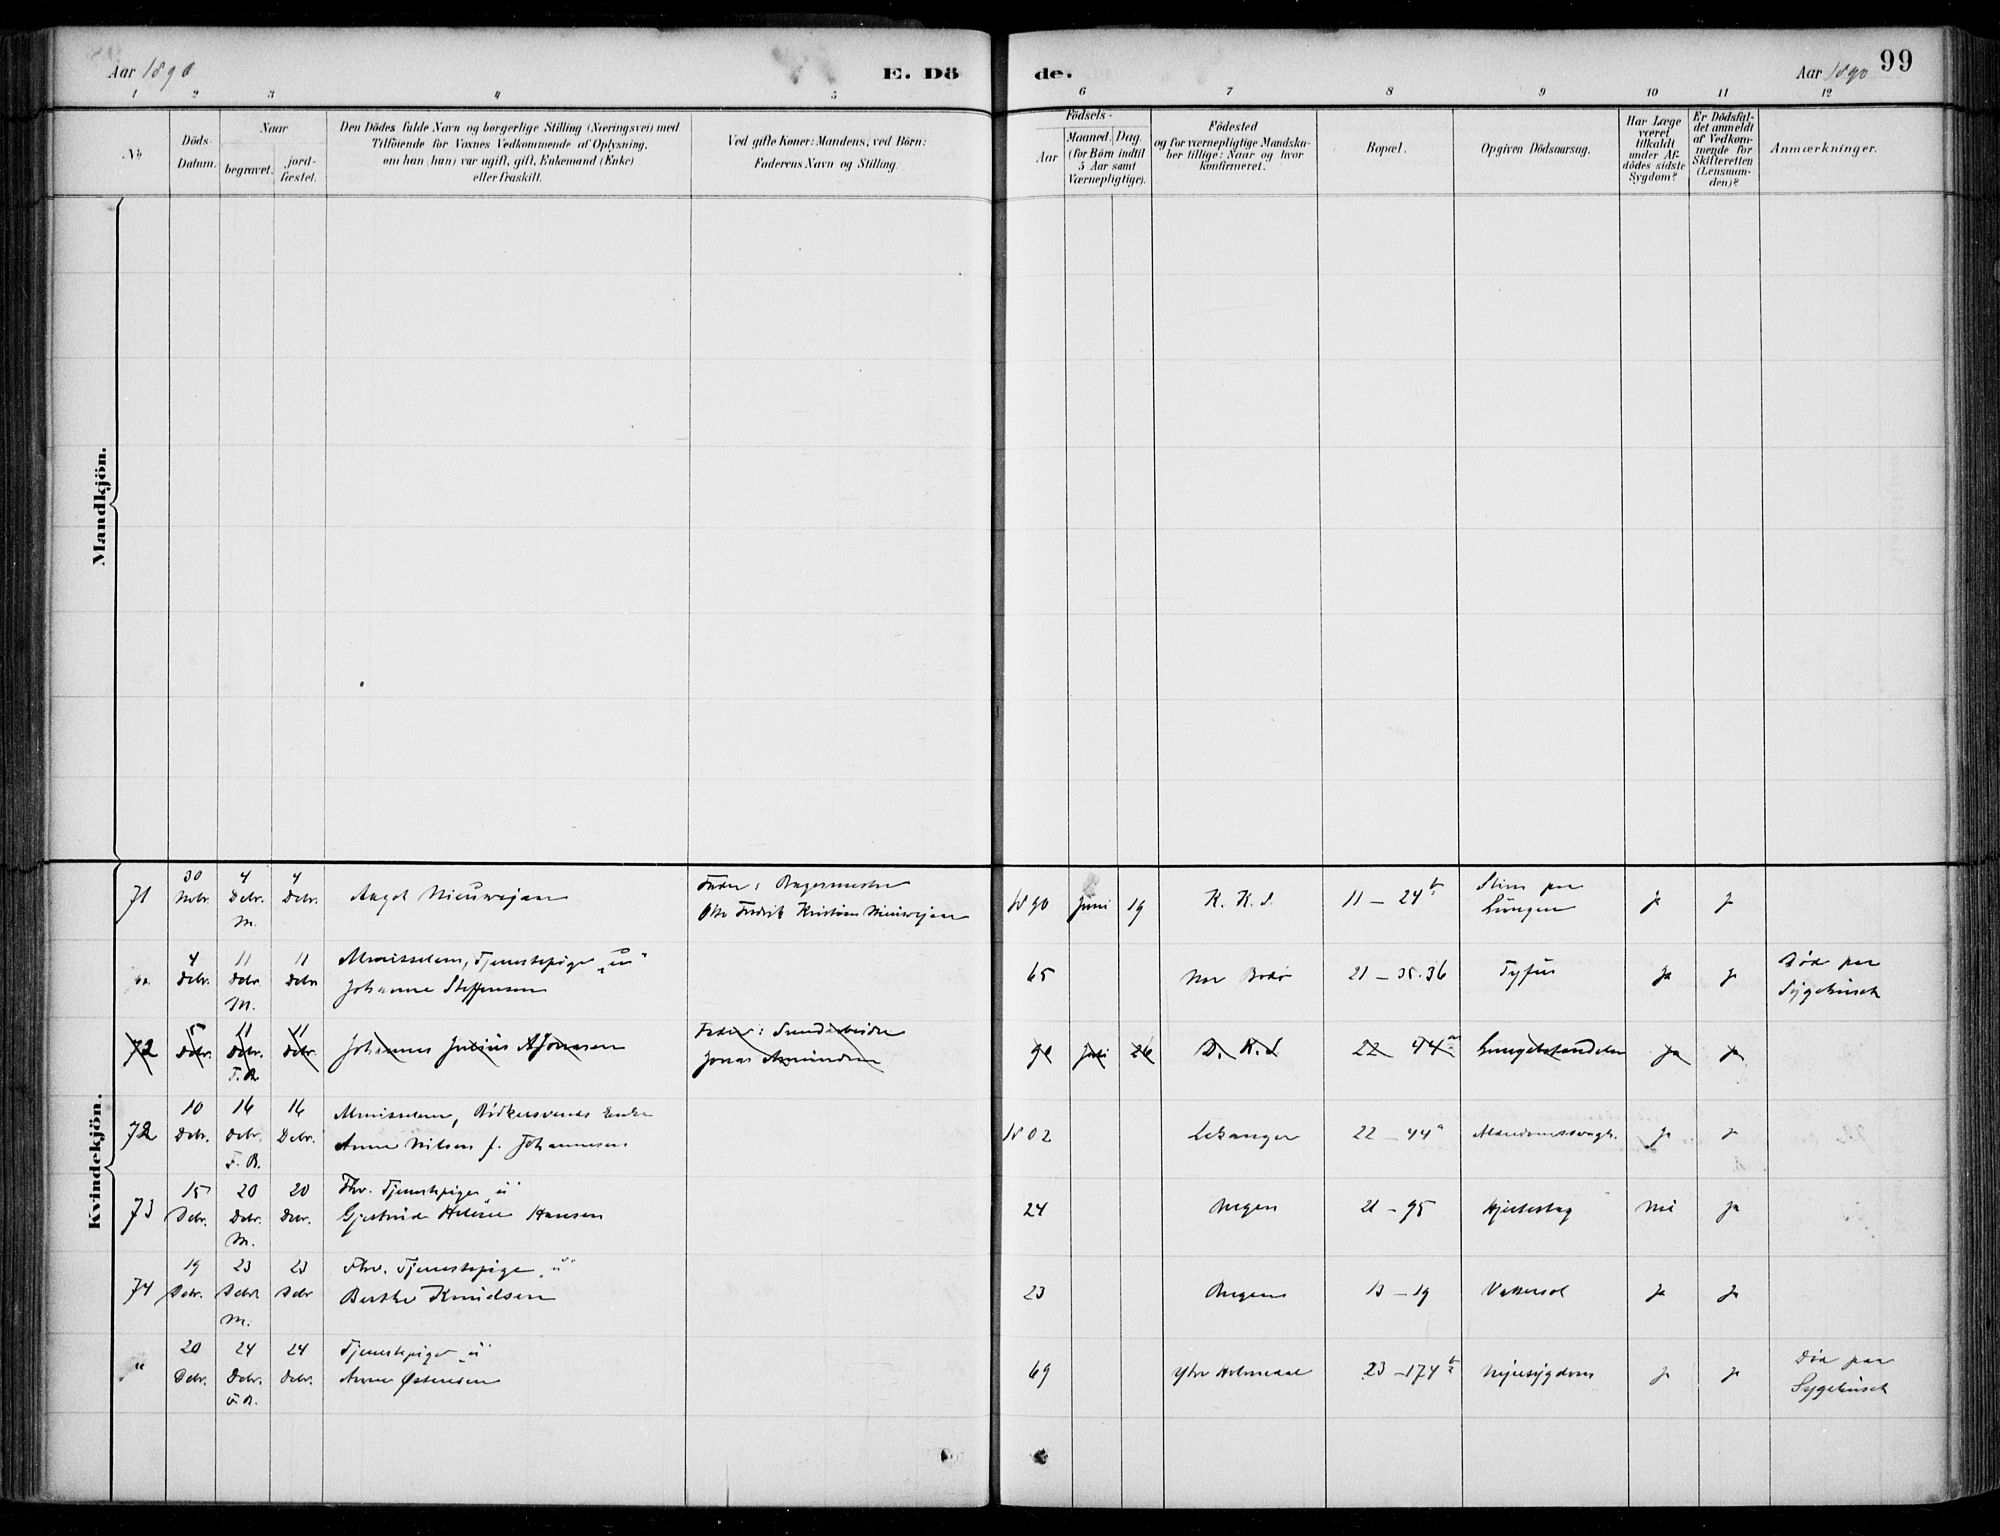 Aar 1890
E. Dö
de.
Aar 1890
99
1 2 3 4 5 6 7 8 9 10 11 12
No
Döds-Datum.
Naar
begravet.
jord-fæstet.
Den Dödes fulde Navn og borgerlige Stilling (Næringsvei) med
Tilföiende for Voxnes Vedkommende af Oplysning,
om han (hun) var ugift, gift, Enkemand (Enke)
eller fraskilt.
Ved gifte Koner: Mandens; ved Börn:
Faderens Navn og Stilling.
Födsels-
Aar
Maaned. Dag.
(for Börn indtil
5 Aar samt
Værnepligtige).
Födested
og for værnepligtige Mandska-
ber tillige: Naar og hvor
konfirmeret.
Bopæl.
Opgiven Dödsaarsag.
Har Læge
været
tilkaldt
under Af-
dödes sidste
Sygdom?
Er Dödsfal-
det anmeldt
af Vedkom-
mende for
Skifteretten
(Lensman-
den)?
Anmærkninger.
Mandkjön.
Kvindekjön.
71 30 Nobr. 4 Debr. M. 4 Debr. Angot Nieuwejaar
Fader: Bagermester
Otto Fredrik Kristian Nieuwejaar
1890 Juni 19 K. K. S. 11 – 24 b Slim paa
Lungen ja ja
4 Debr. 11 Debr. M. 11 Debr. Almisselem, Tjenestepige "u"
Johanne Steffensen
65 Nor Bodø 21 – 35.36 Tyfus ja ja Død paa
Sygehuset
72 5 Debr. 11 Debr. F.B. 11 Debr. Johannes Julius A Jonassen
Fader:
Jonas Amundsen
90 Juli 26 D. K. S 22 44 Lungebetændelse ja ja
72 10 Debr. 16 Debr. F. B. 16 Debr. Almisselem, Bødkersvends Enke
Anne Nilsen f. Johannesen.
1802 Lekanger 22 – 44 a Alderdomssvagh. ja ja
73 15 Debr. 20 Debr. M. 20 Debr. Fhv. Tjenestepige "u"
Gjertrud Helene Hansen
24 Bergen 21 – 95 Hjerteslag Nei ja
74 19 Debr. 23 Debr. M. 23 Debr Fhv. Tjenestepige "u"
Berthe Knudsen
23 Bergen 13 – 19 Vattersot ja ja
" 20 Debr. 24 Debr. 24 Debr. Tjenestepige "u"
Anne Østensen
69 Ytre Holmedal 23 – 174 b Nyresygdom ja ja Død paa
Sygehuset